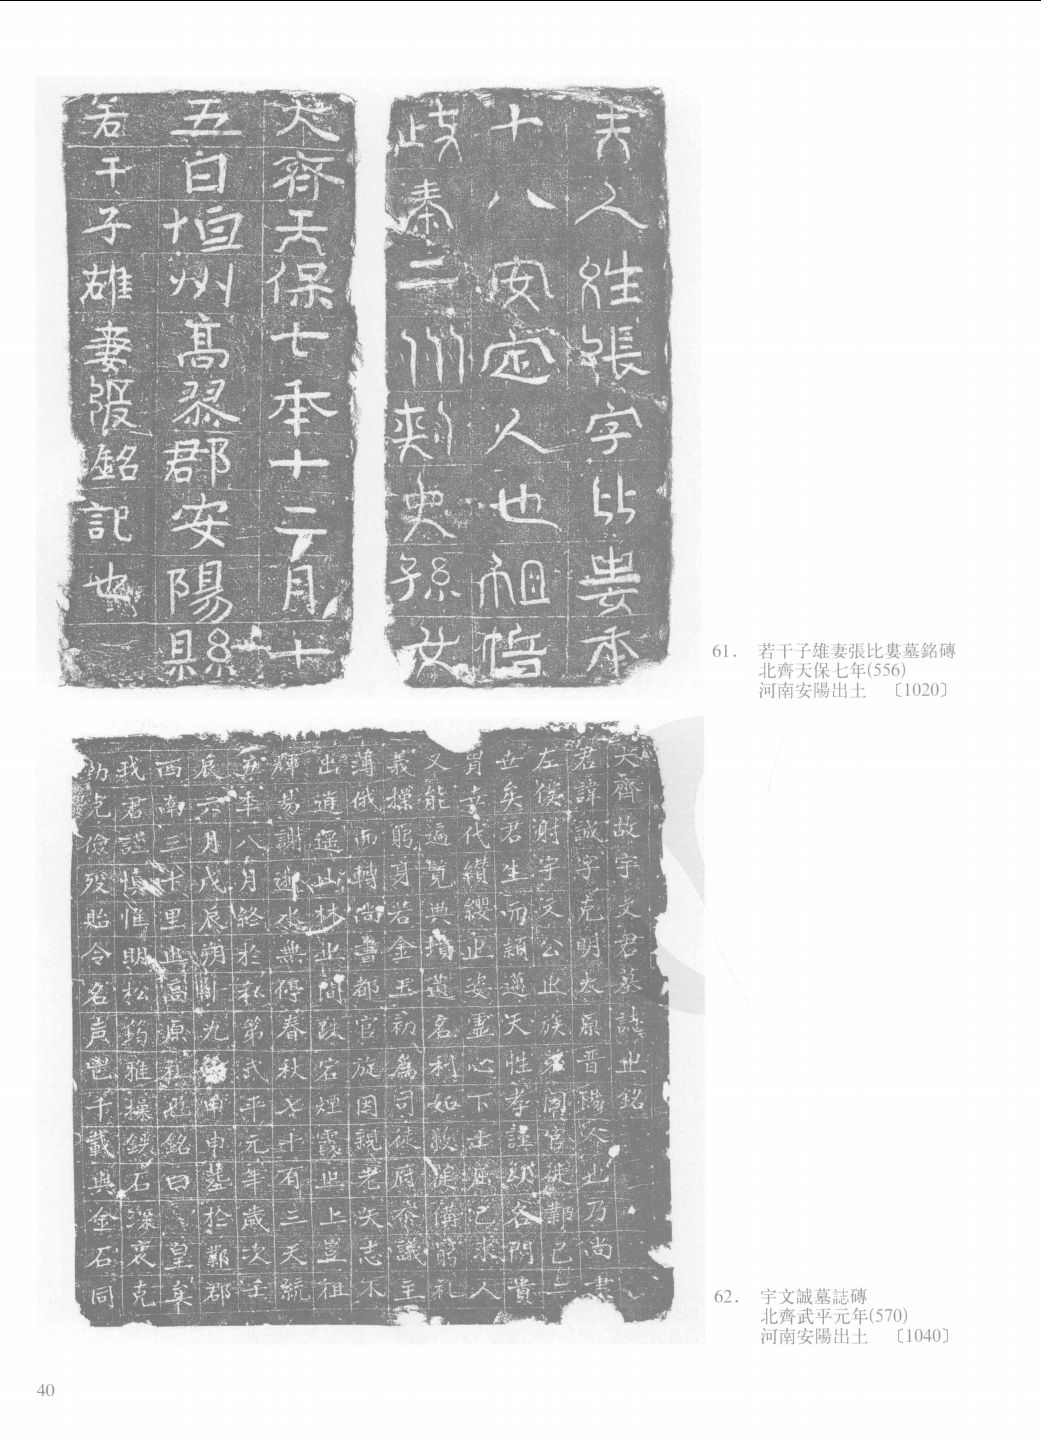 大齊天保七年十二月十
五日恒州高柳郡安陽縣
若干子雄妻張銘記也
夫人姓張字比婁年
十八安定人也祖悟
歧秦二州刾史孫女
61. 若干子雄妻張比婁墓銘磚
北齊天保七年(556)
河南安陽出土 〔1020〕
大齊故宇文君墓誌之銘
君諱誠字克明太原晋陽人也乃尚書
左僕射宇文公之族弟因官徙鄴已二
世矣君生而穎邁天性孝謹幼名閥貴
胄幸代纘纓之姿靈心下士屈己求人
又能遍覽典墳遺名利如敝屣備窮礼
義操躬身若金玉初為司徒府叅議主
薄俄而轉尚書都官旋因親老矢志不
出逍遥山林之間跌宕煙霞之上豈徂
輝易謝逝水無停春秋七十有三天統
五年八月終於私第武平元年歲次壬
辰六月戊辰朔十九日甲申葬於鄴郡
西南三十里之高原礼也銘曰 皇矣
我君謹慎惟明松筠雅操鐵石深衷克
勤克儉歿貽令名声邑千載與金石同
62. 宇文誠墓誌磚
北齊武平元年(570)
河南安陽出土 〔1040〕
40